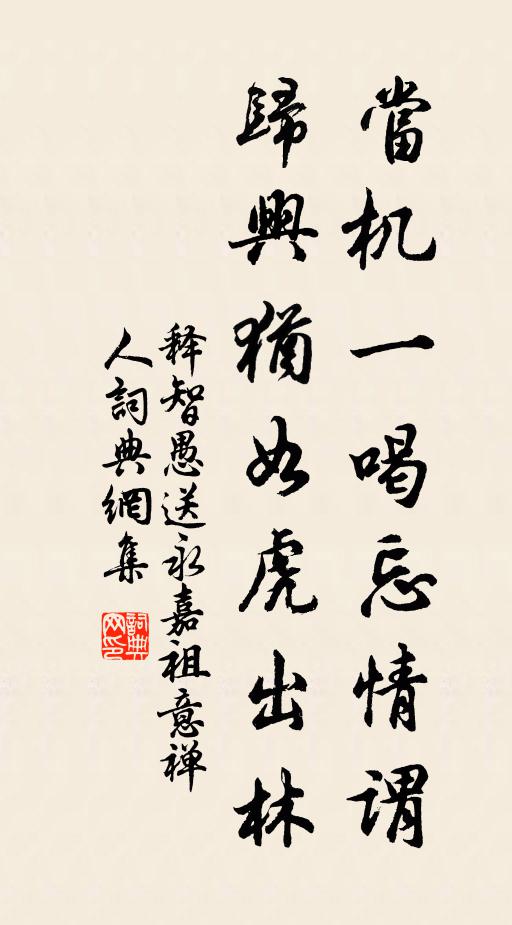 當机一喝忘情謂
歸興猶如虎出林
释智愚送永嘉祖意禅
人詞典網集
詞典
网印